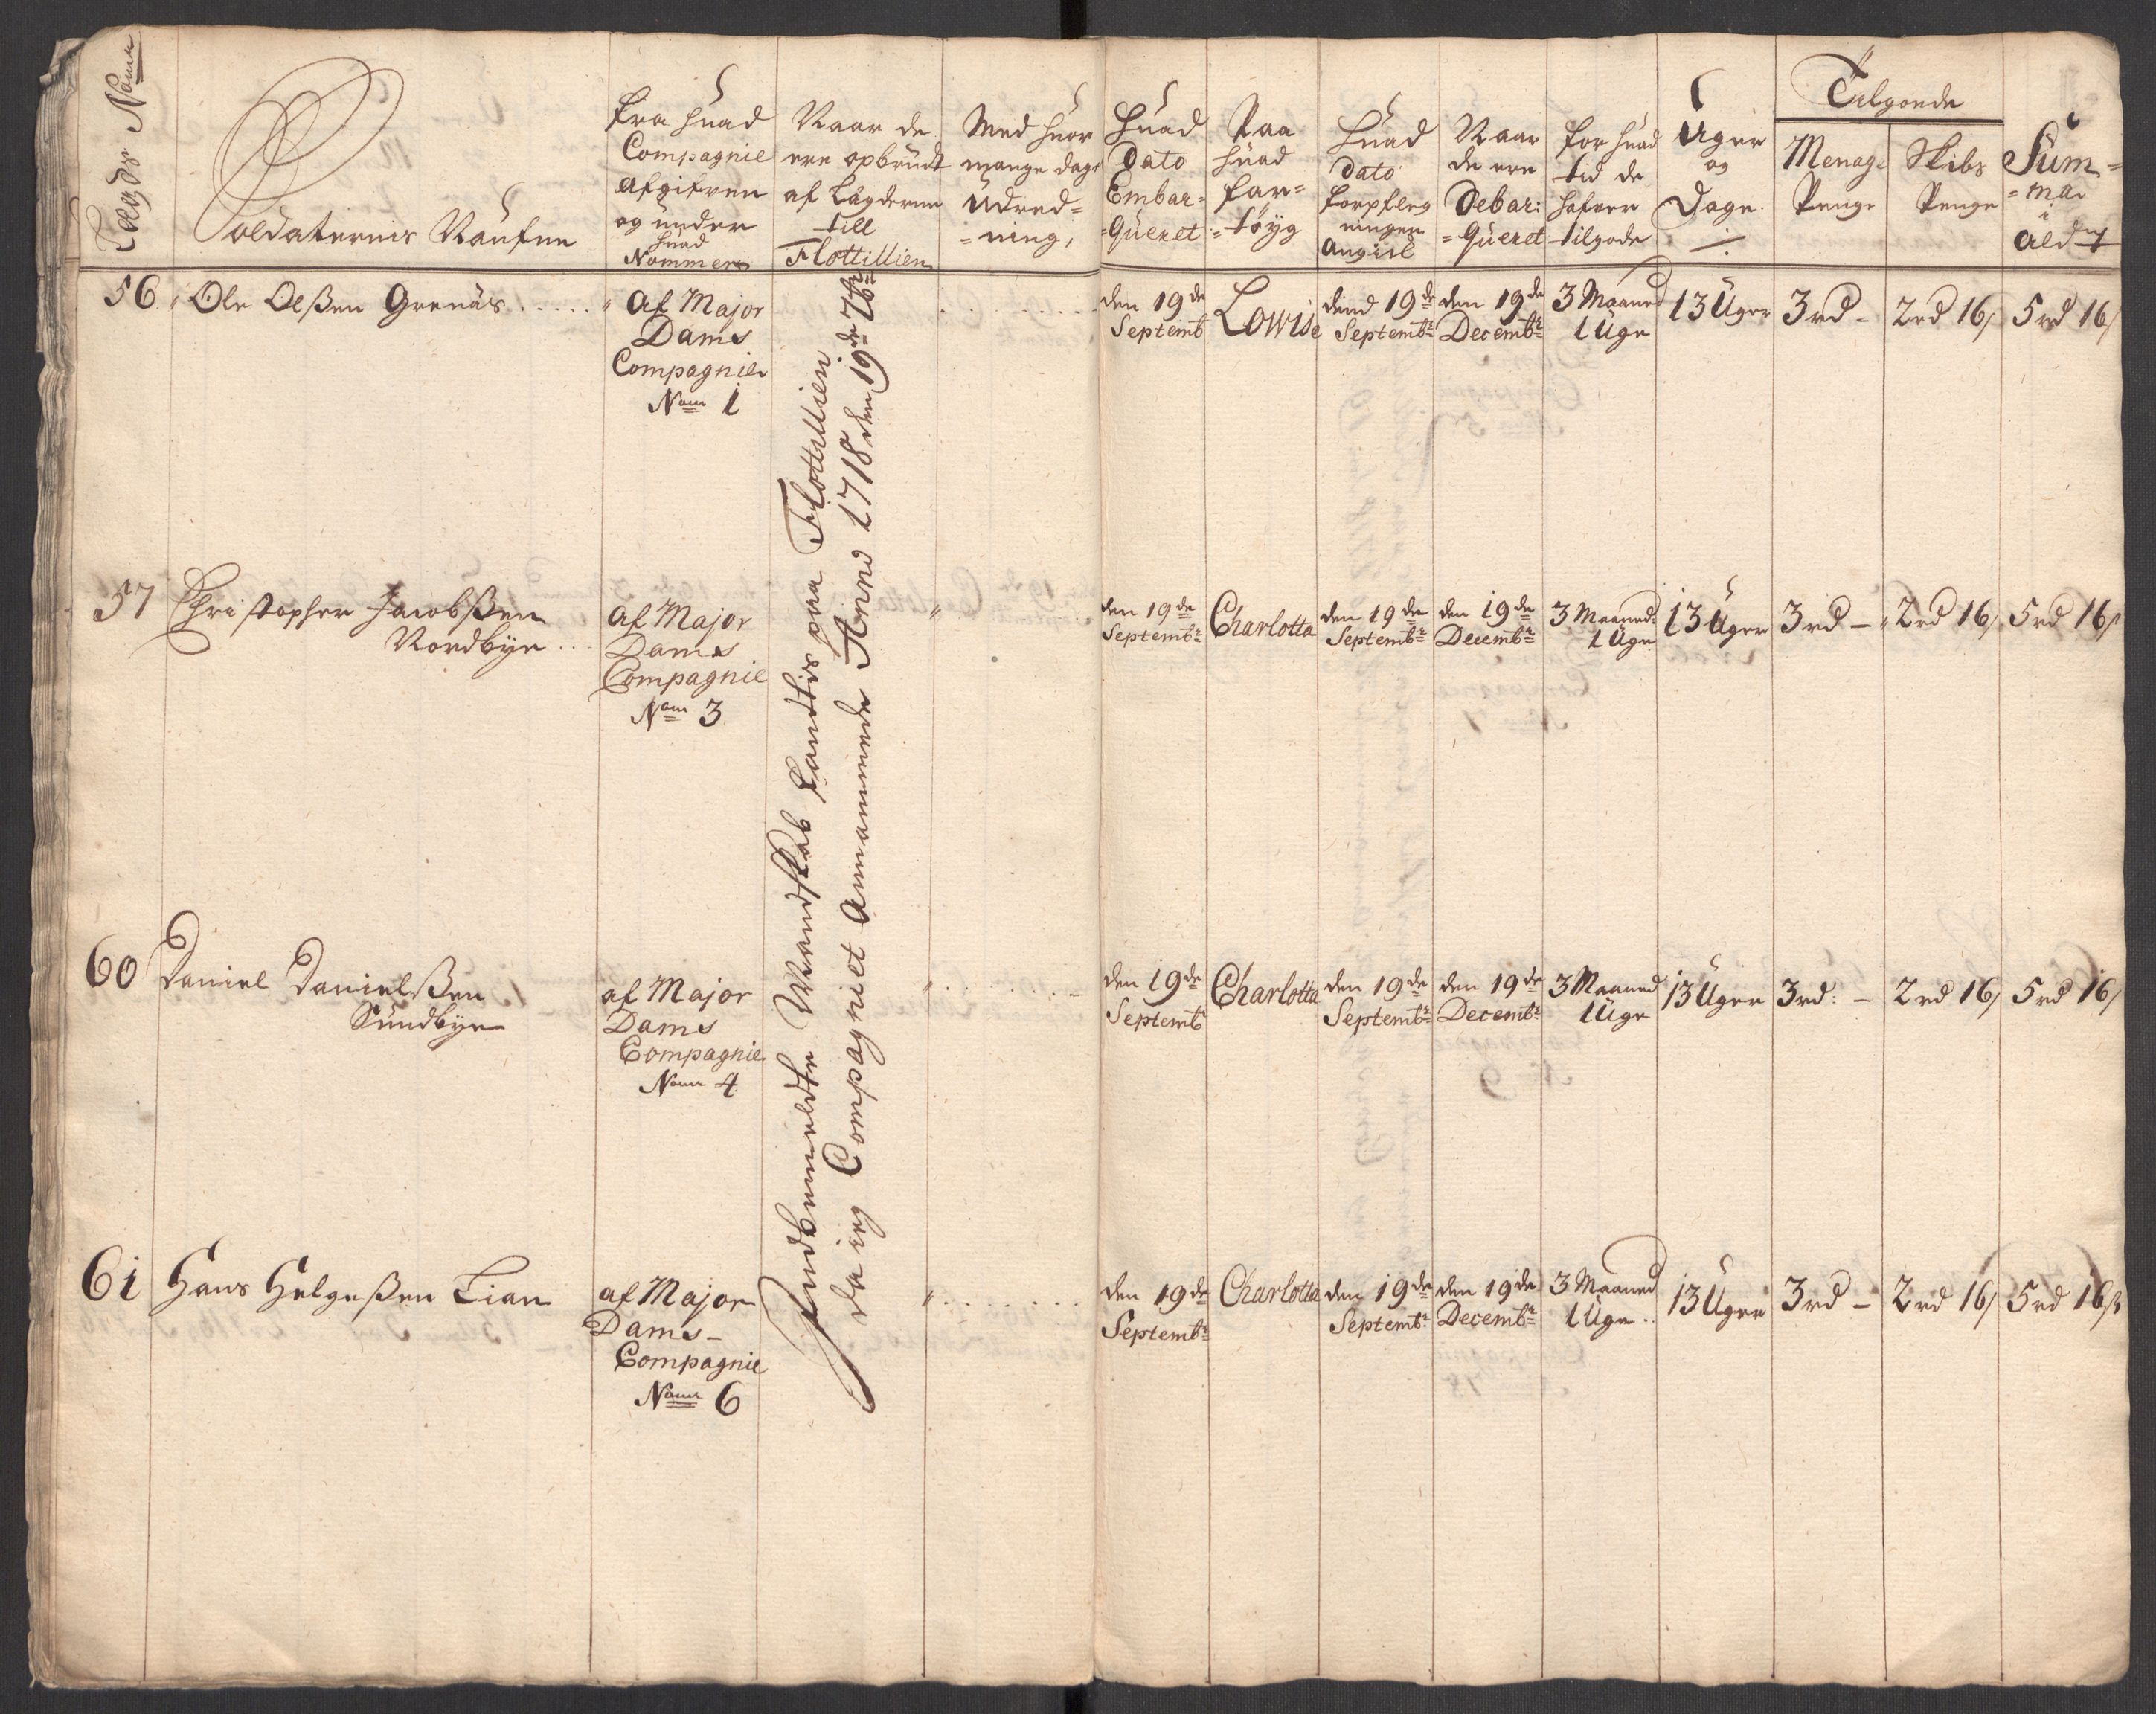 Lægds Nom̄
Soldaternis Naufne
fra huad
Compagnie
afgifven
og under
huad
Nommer
Naar de
ere opbrudt
af Lægderne
till
Flottillien
Med huor
mange dags
Udred=
=ning,
Huad
Dato
Embar=
=Queret
Paa
huad
Far=
=tøyg
Huad
Dato
forpfleg
ningen
Angick
Naar
de ere
Debar:
=Queret
for huad
tid de
hafver
tilgode
Uger
og
Dage.
Tilgode
Menage
Penge
Skibs
Penge
Sum=
=ma
56
Ole Olßen Grenäs .....
Af Major
Dams
Compagnie
Nom 1
den 19de
Septemb
Lowise
dend 19de
Septembr
den 19de
Decembr
3 Maaned
1 Uge
13 Uger
3 rd -
2 rd 16
5 rd 16
57
Christopher Jacobßen
Nordbye ..
Af Major
Dams
Compagnie
Nom 3
den 19de
Septembr
Charlotta
den 19de
Septembr
den 19de
Decembr
3 Maaned
1 Uge
13 Uger
3 rd -
2 rd 16
5 rd 16
60
Daniel Danielßen
Sundbye
af Major
Dams
Compagnie
Nom 4
den 19de
Septembr
Charlotta
den 19de
Septembr
den 19de
Decembr
3 Maaned
1 Uge
13 Uger
3 rd: -
2 rd 16
5 rd 16
61
Hans Helgeßen Lian
af Major
Dams -
Compagnie
Nom 6
den 19de
Septembr
Charlotta
den 19de
Septembr
den 19de
Decembr
3 Maaned
1 Uge ..
13 Uger
3 rd -
2 rd 16
5 rd 16ß
Indbemeldte Mandskab fantis paa Flottillien
da ieg Compagniet Annammede Anno 1718 den 19de 7br